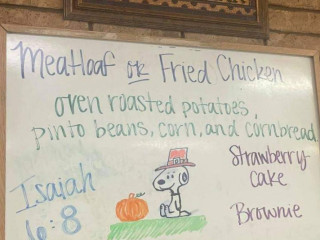 Meatloaf or Fried Chicken
oven roasted potatoes,
pinto beans, corn, and cornbread
Strawberry
Cake
Isaiah
6:8
Brownie